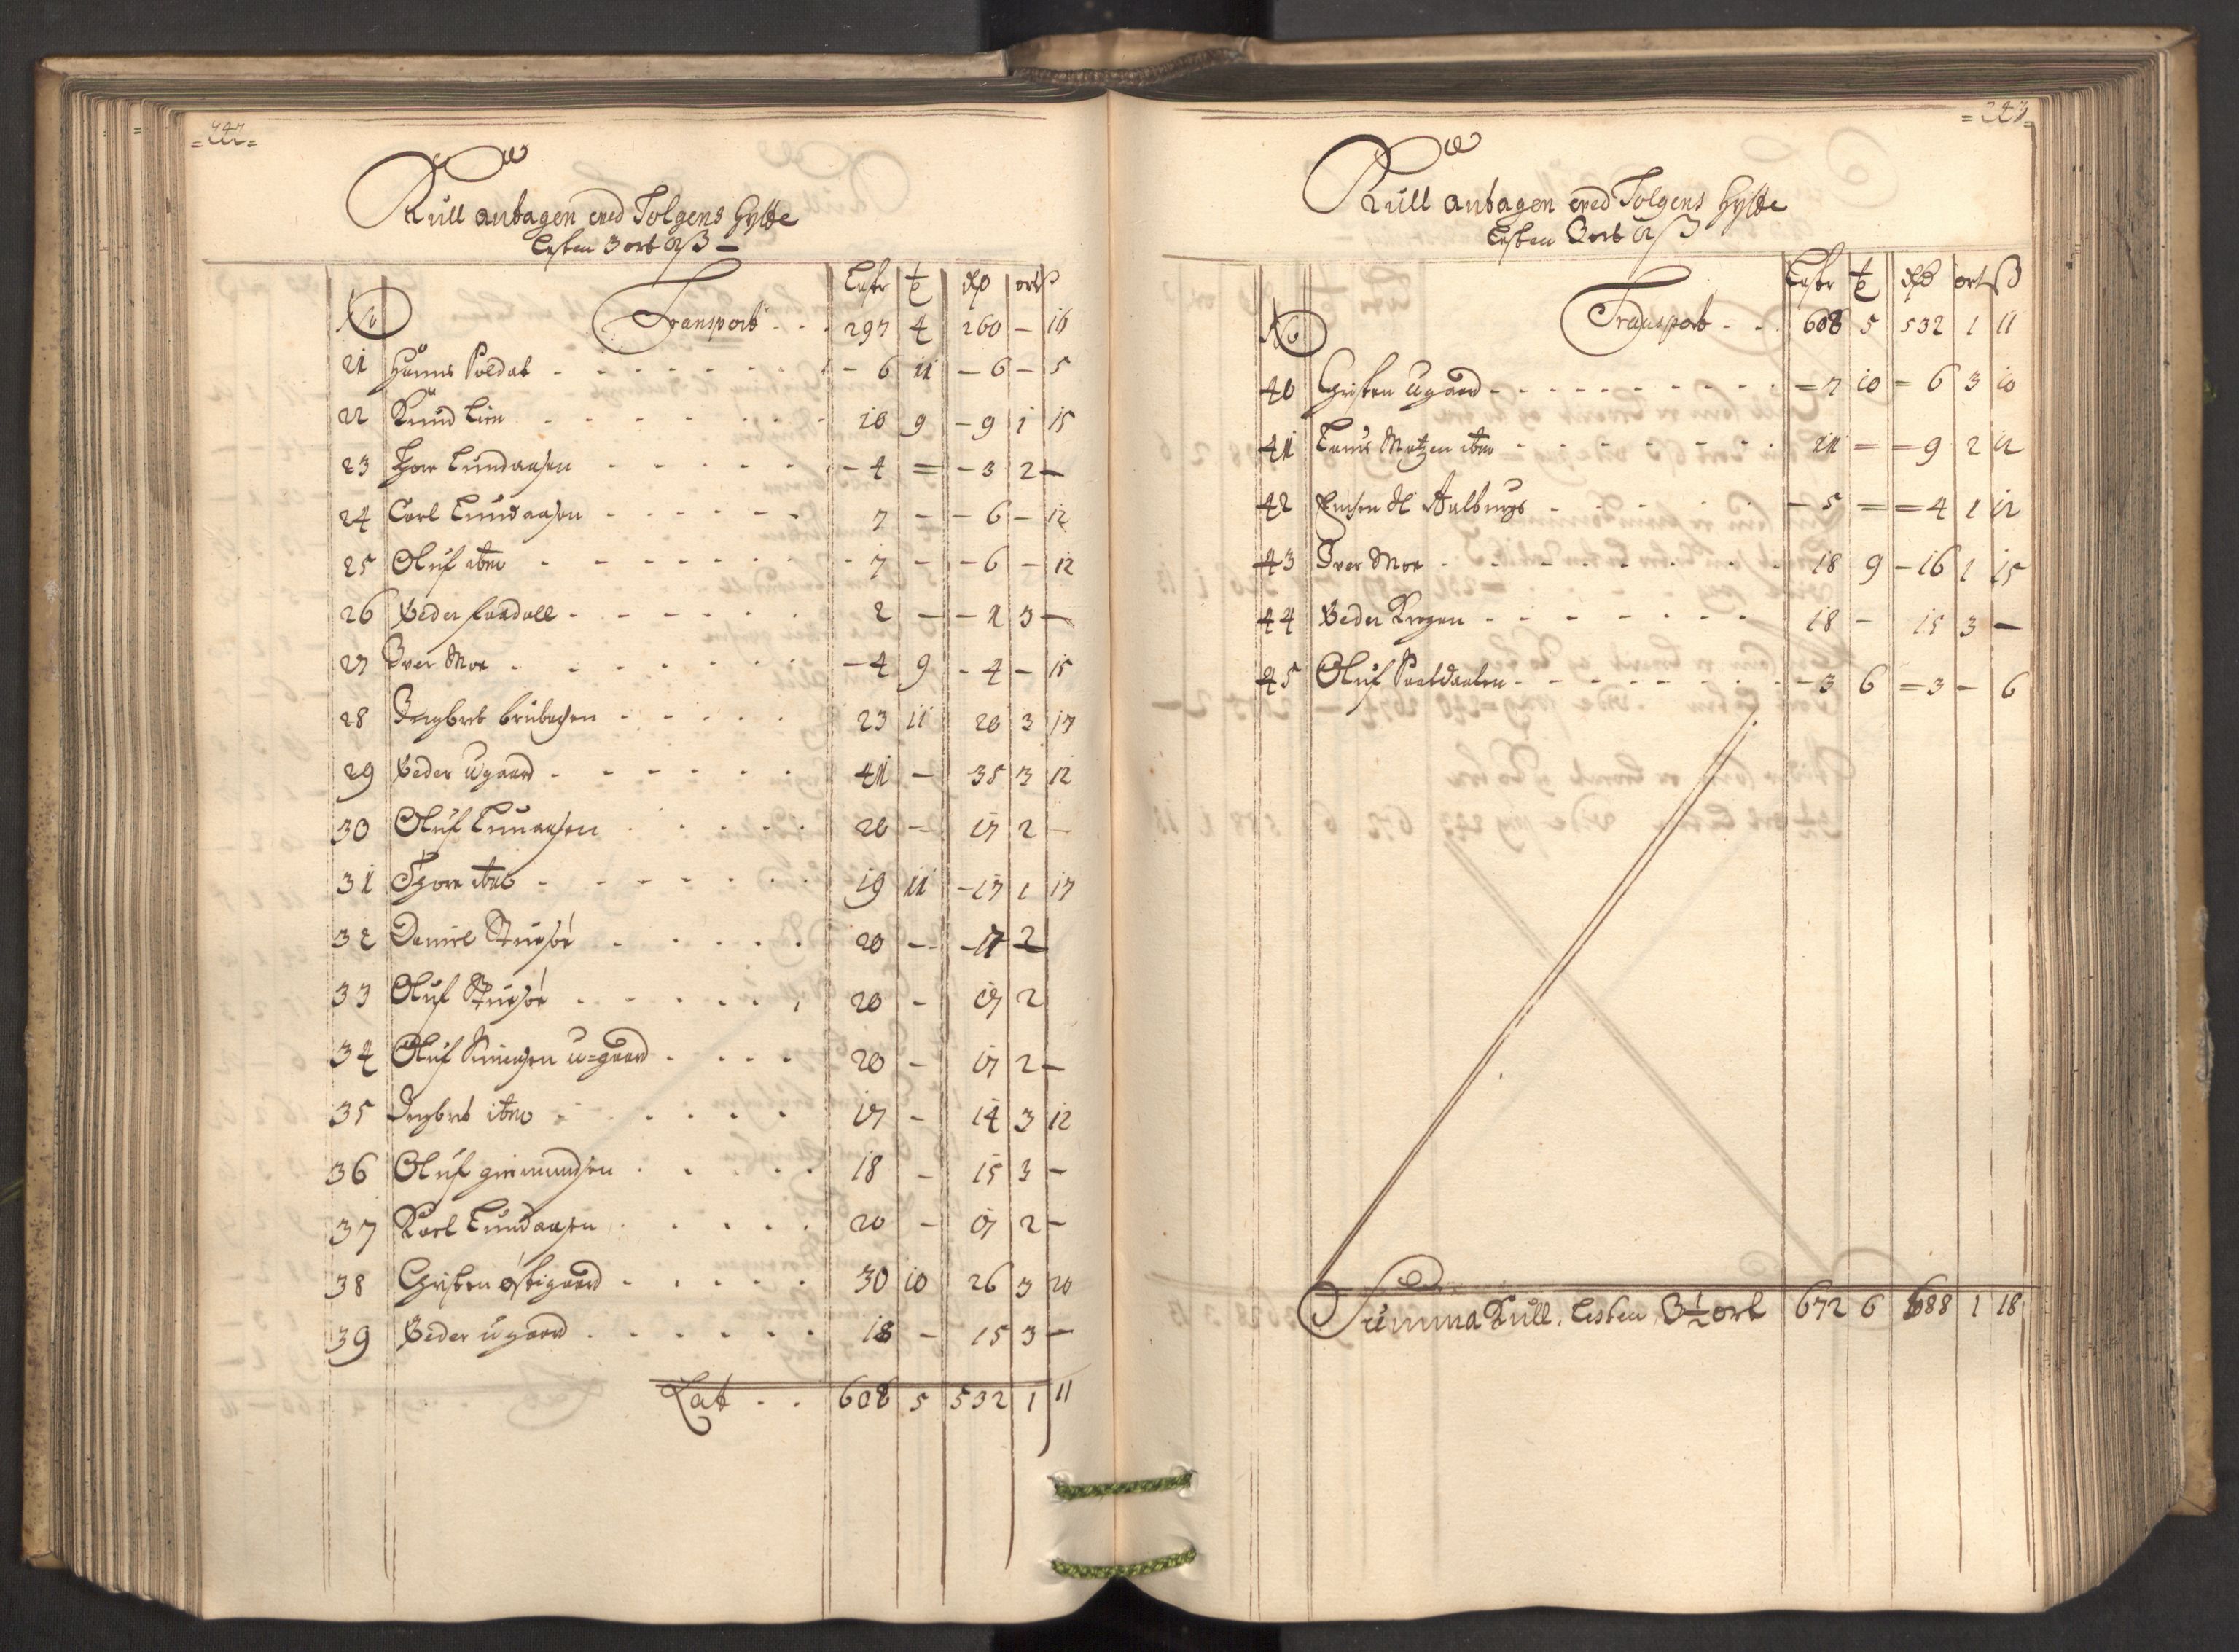 =247=
Kull antagen ved Tolgens Hytte
Lesten 3 ort 12 ß –
No Lester t Rdr ort ß
Transport - - 297 4 260 – 16
21 Hanns Soldat - - - - - - – 6 11 – 6 – 5
22 Knud Lien - - - - - - 10 9 – 9 1 15
23 Thore Lundaasen - - - - - – 4 = – 3 2 –
24 Carl Lundaasen - - - - - - 7 – – 6 – 12
25 Oluf ibm - - - - - - - 7 – – 6 – 12
26 Peder - - - - - - 2 – – 1 3 –
27 Iver Moe - - - - - - – 4 9 - 4 – 15
28 Ingbret - - - - - 23 11 20 3 17
29 Peder Ugaard - - - - - - 41 – 35 3 12
30 Oluf - - - - 20 – 17 2 –
31 Thore ibm - - - - - - 19 11 – 17 1 17
32 Daniel - - - - - 20 – – 17 2
33 Oluf - - - - - 20 - 17 2
34 Oluf U=gaard - - - - 20 – 17 2 –
35 Ingbret ibm - - - - - 17 - 14 3 12
36 Oluf - - - - - 18 - 15 3 –
37 Karl Lundaasen - - - - - 20 – 17 2 –
38 Christen Østigaard - - - - - 30 10 26 3 20
39 Peder Ugaard - - - - - - 18 – 15 3 –
Lat - - 608 5 532 1 11
=247=
Kull antagen ved Tolgens Hytte
Lesten 3 ort 12 ß
No Lester t Rdr ort ß
Transport - - 608 5 532 1 11
40 Christen Ugaard - - - - - - - - = 7 10 = 6 3 10
41 ibm - - - - - - - 11 = = 9 2 12
42 Aalburgs - - - - - – 5 = = 4 1 12
43 Iver Moe - - - - - - - 18 9 – 16 1 15
44 Peder Krogen - - - - - - 18 – 15 3 –
45 Oluf - - - - - - - – 3 6 = 3 – 6
Summa Kull. Lesten 3½ ort 672 6 588 1 18